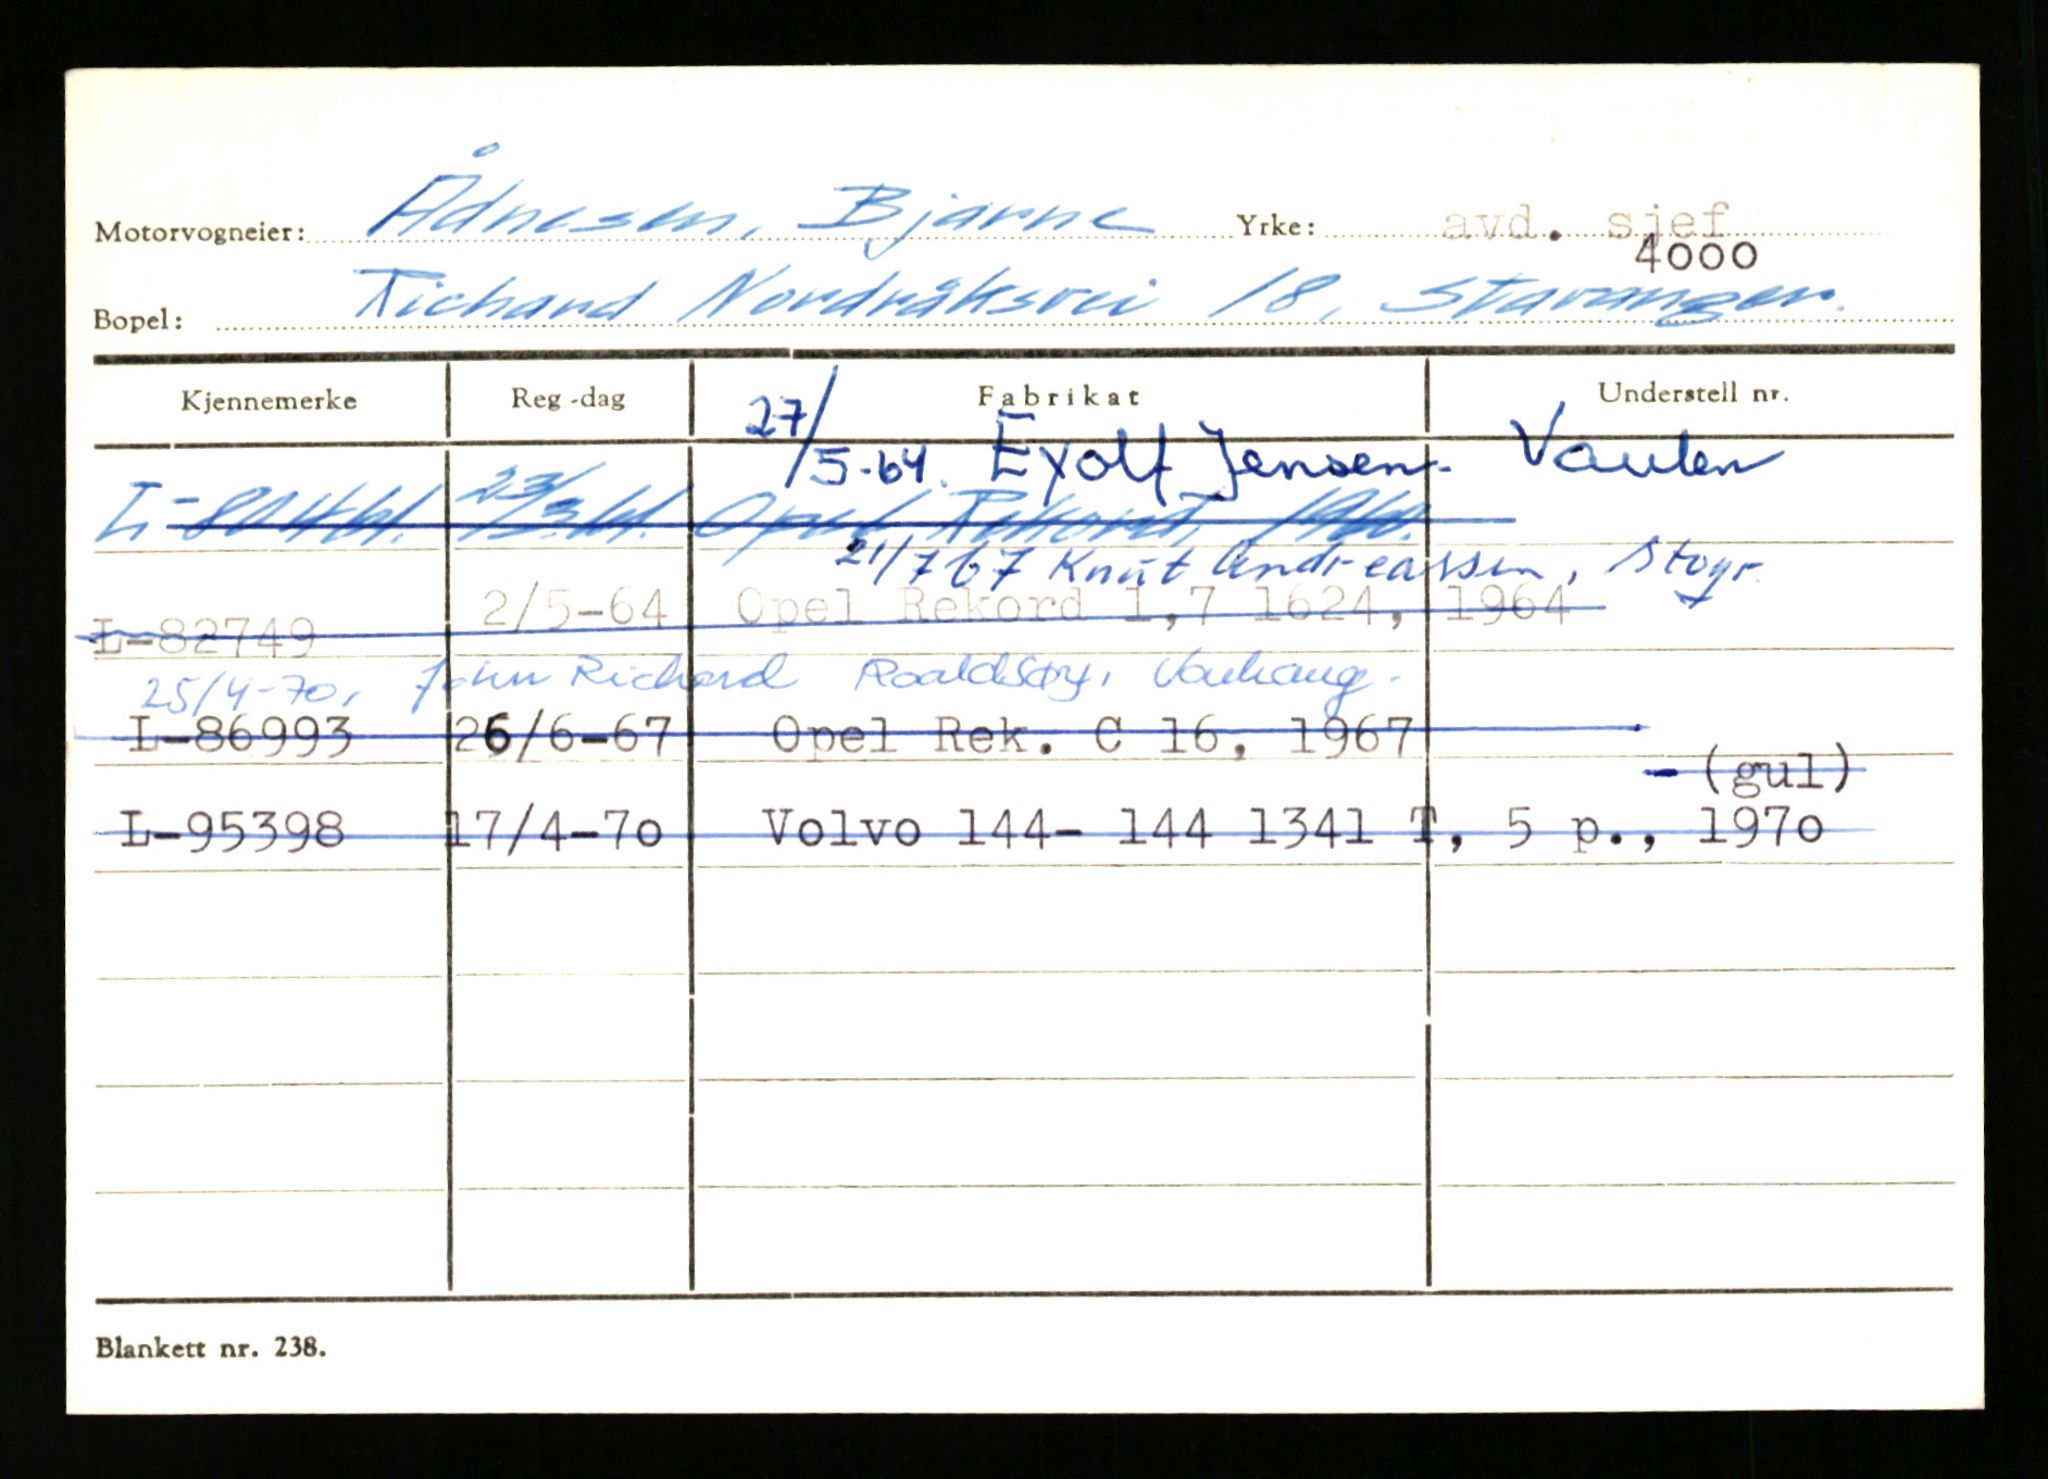 Motorvogneier: Ådnesen, Bjarne Yrke: avd. sjef
4000
Bopel: Richard Nordråksvei 18, Stavanger.
Kjennemerke Reg-dag Fabrikat Understell nr.
27/5-64. Eyolf Jensen- Vaulen
L- 23/3.61. Opel Rekord,
21/7 67 Knut Andreassen,
L-82749 2/5-64 Opel Rekord 1,7 1624, 1964
25/4-70, John Richard Roaldsøy,
L-86993 26/6-67 Opel Rek. C 16, 1967
- (gul)
L-95398 17/4-70 Volvo 144- 144 1341 T, 5 p., 1970
Blankett nr. 238.